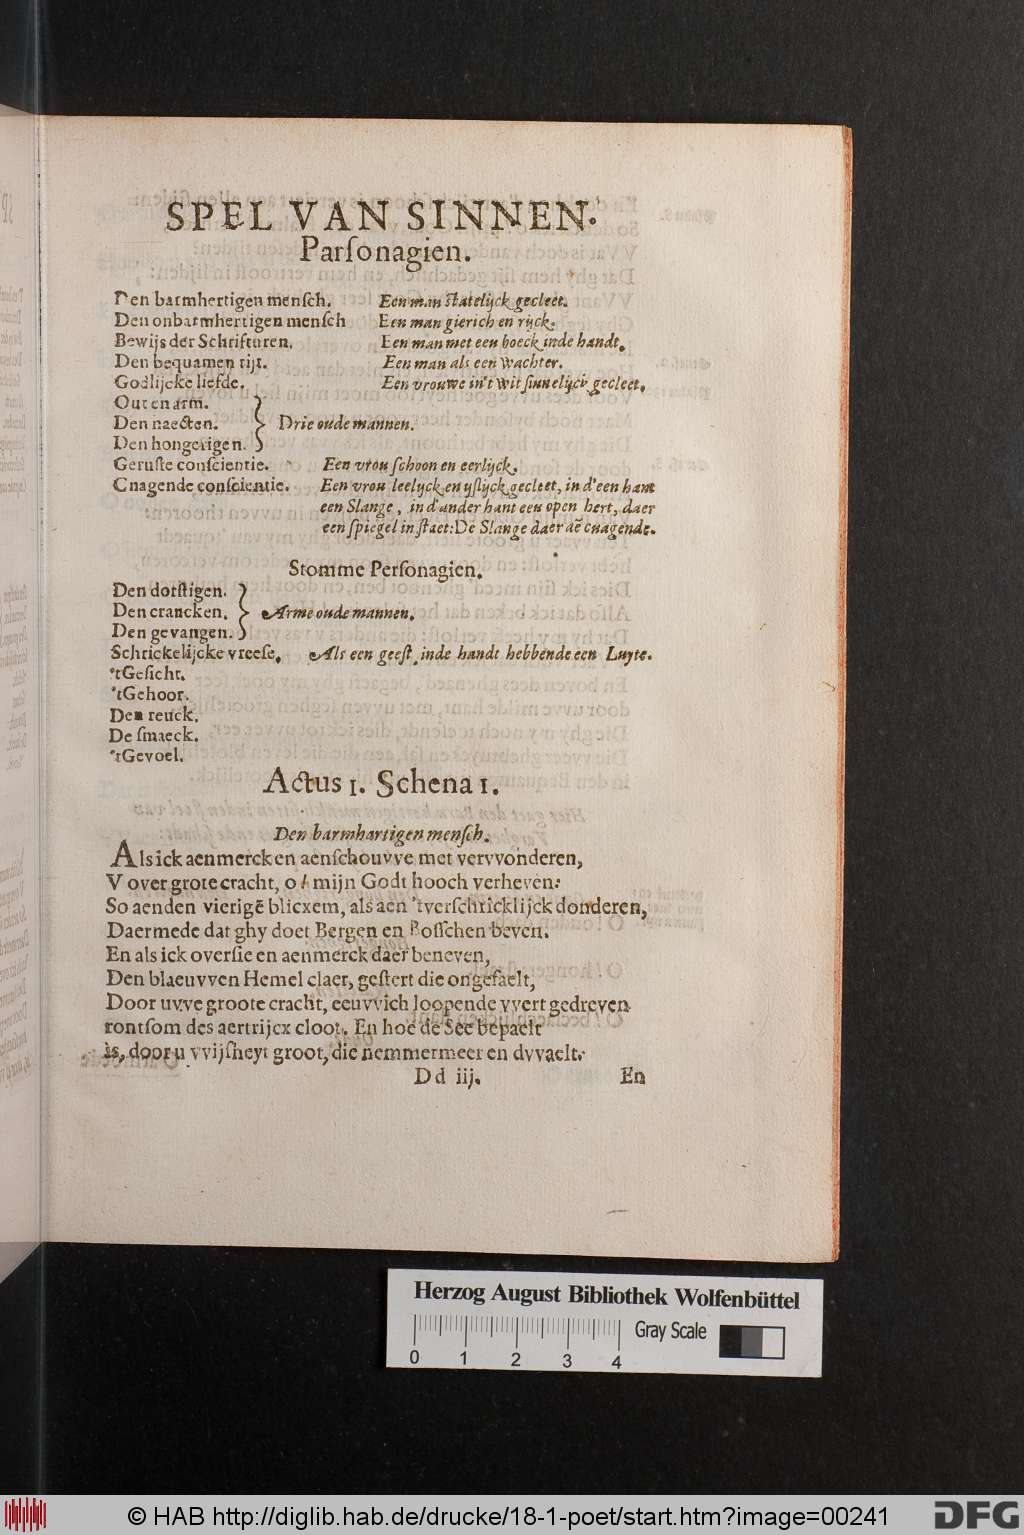 SPEL VAN SINNEN.
Parſonagien.
Den barmhertigen menſch. Een man ſtatelijck gecleet.
Den onbarmhertigen menſch Een man gierich en rijck.
Bewijs der Schrifturen. Een man met een boeck inde handt.
Den bequamen tijt. Een man als een Wachter.
Godlijcke liefde. Een vrouwe in't wit ſinnelijck gecleet.
Out en arm.
Den naeckten. } Drie oude mannen.
Den hongerigen.
Geruſte conſcientie. Een vrou ſchoon en eerlijck.
Cnagende conſcientie. Een vrou leelyck en yſlyck gecleet, in d'een hant
een Slange, in d'ander hant een open hert, daer
een ſpiegel in ſtaet: De Slange daer aē cnagende.
Stomme Perſonagien.
Den dorſtigen.
Den crancken. } Arme oude mannen.
Den gevangen.
Schrickelijcke vreeſe. Als een geeſt inde handt hebbende een Luyte.
'tGeſicht.
'tGehoor.
Den reuck.
De ſmaeck.
'tGevoel.
Actus 1. Schena 1.
Den barmhartigen menſch.
Als ick aenmerck en aenſchouvve met vervvonderen,
V over grote cracht, o! mijn Godt hooch verheven:
So aenden vierigē blicxem, als aen 'tverſchricklijck donderen,
Daermede dat ghy doet Bergen en Boſſchen beven.
En als ick overſie en aenmerck daer beneven,
Den blaeuvven Hemel claer, geſtert die ongefaelt,
Door uvve groote cracht, eeuvvich loopende vvert gedreven
rontſom des aertrijcx cloot. En hoe de See bepaelt
is, door u vvijſheyt groot, die nemmermeer en dvvaelt.
Dd iij. En
Herzog August Bibliothek Wolfenbüttel
Gray Scale
0 1 2 3 4
© HAB http://diglib.hab.de/drucke/18-1-poet/start.htm?image=00241
DFG